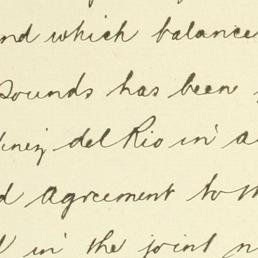 and which balance
Pounds has been
tinez del Rio in a
d agreement to th
l in the joint n